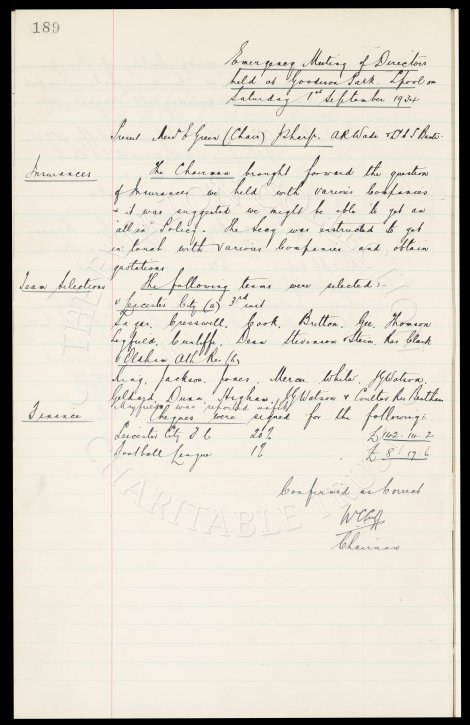 189
Emergency Meeting of Directors
held at Goodison Park L'pool on
Saturday 1st September 1934
Present Messrs E Green (Chair) J Sharp. A R Wade &
Insurances The Chairman brought forward the question
of Insurances we held with various Companies
& it was suggested we might be able to get an
"all in" Policy. The Secy was instructed to get
in touch with various Companies and obtain
quotations
Team Selections The following teams were selected:-
v Leicester City (a) 3rd inst
Sagar. Cresswell. Cook. Britton. Gee. Thomson
Cunliffe. Dean Stevenson & Stein Res Clark
v Oldham Ath. Res (h)
King. Jackson. Jones. Mercer. White. J G Watson.
Geldard. Dunn. Higham. & Coulter Res Bentham
was reported unfit
Finance Cheques were signed for the following:-
Leicester City F C 20% £142. 14. 2
Football League 1% £8. 17. 6
Confirmed as Correct
Chairman
CHARITABLE TRUST